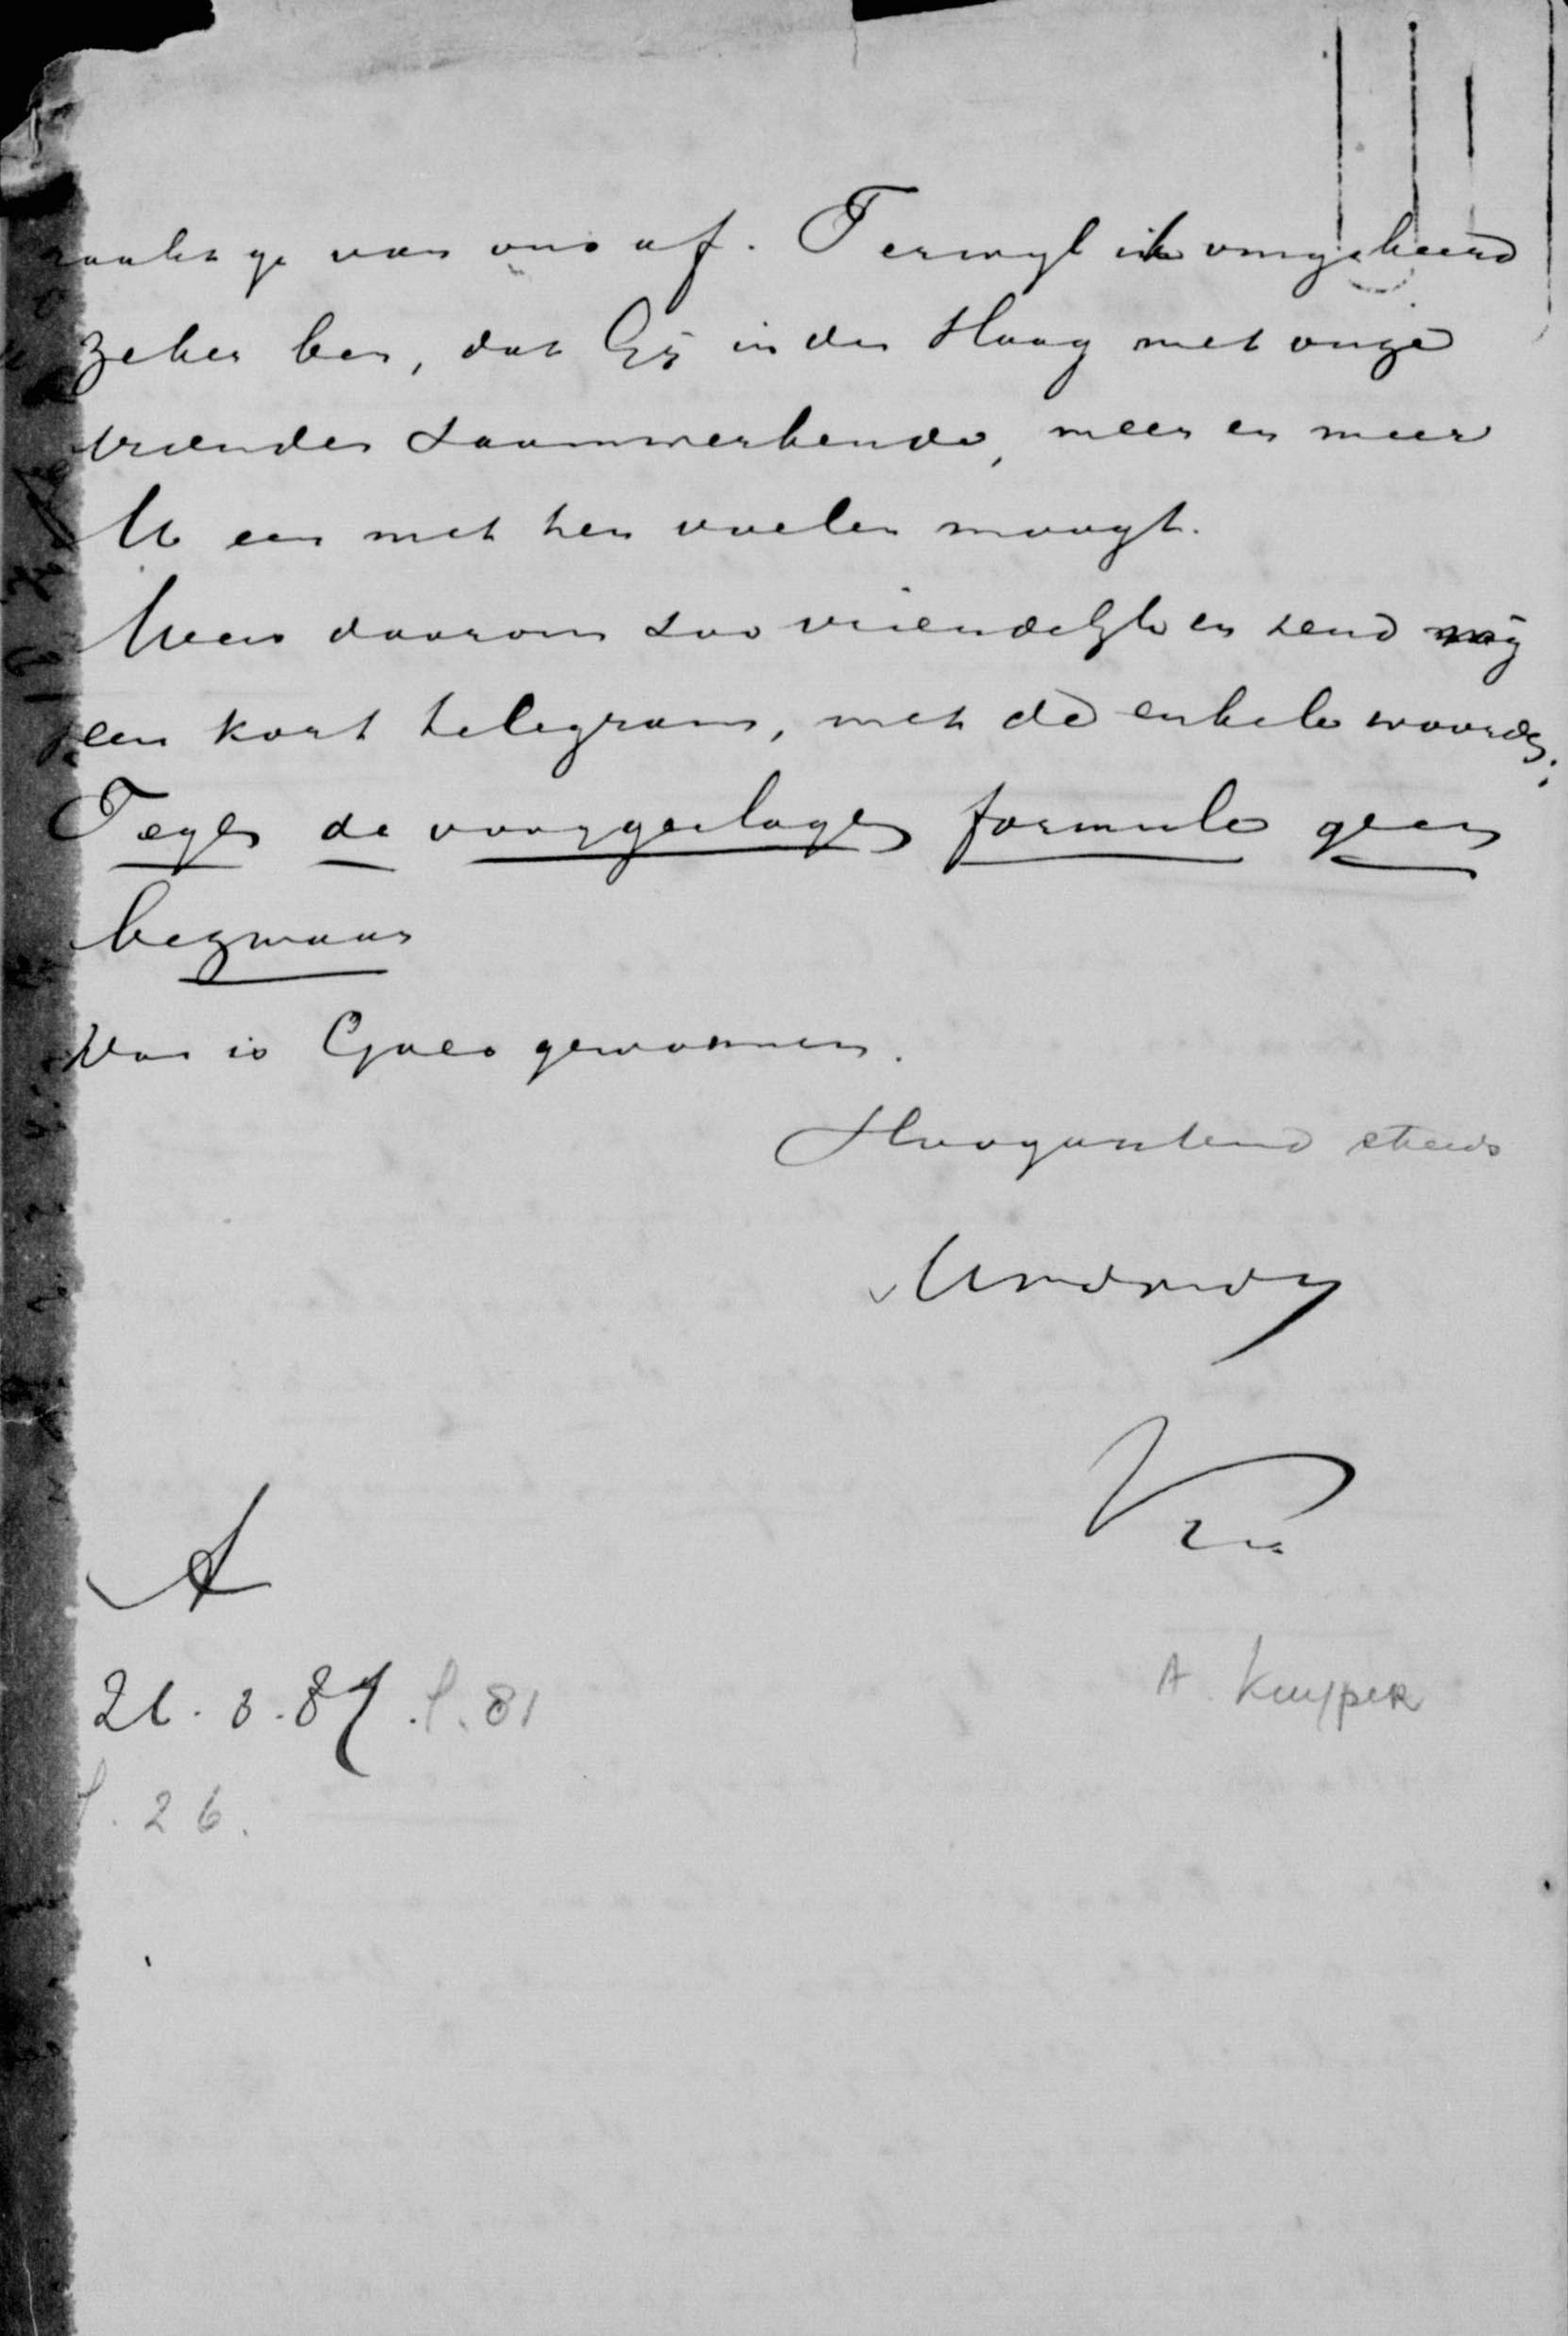 raakt ge van ons af. Terwyl ik omgekeerd
zeker ben, dat Gij in den Haag met onze
vrienden saamwerkende, meer en meer
U een met hen voelen moogt.
Wees daarom zoo vriendelyk en zend mij
een kort telegram, met de enkele woorden:
Tegen de voorgeslagen formule geen
bezwaar
Dan is Goes gewonnen.
Hoogachtend steeds
Kr
A
A. Kuyper
21.8.87. S. 81
S. 26.